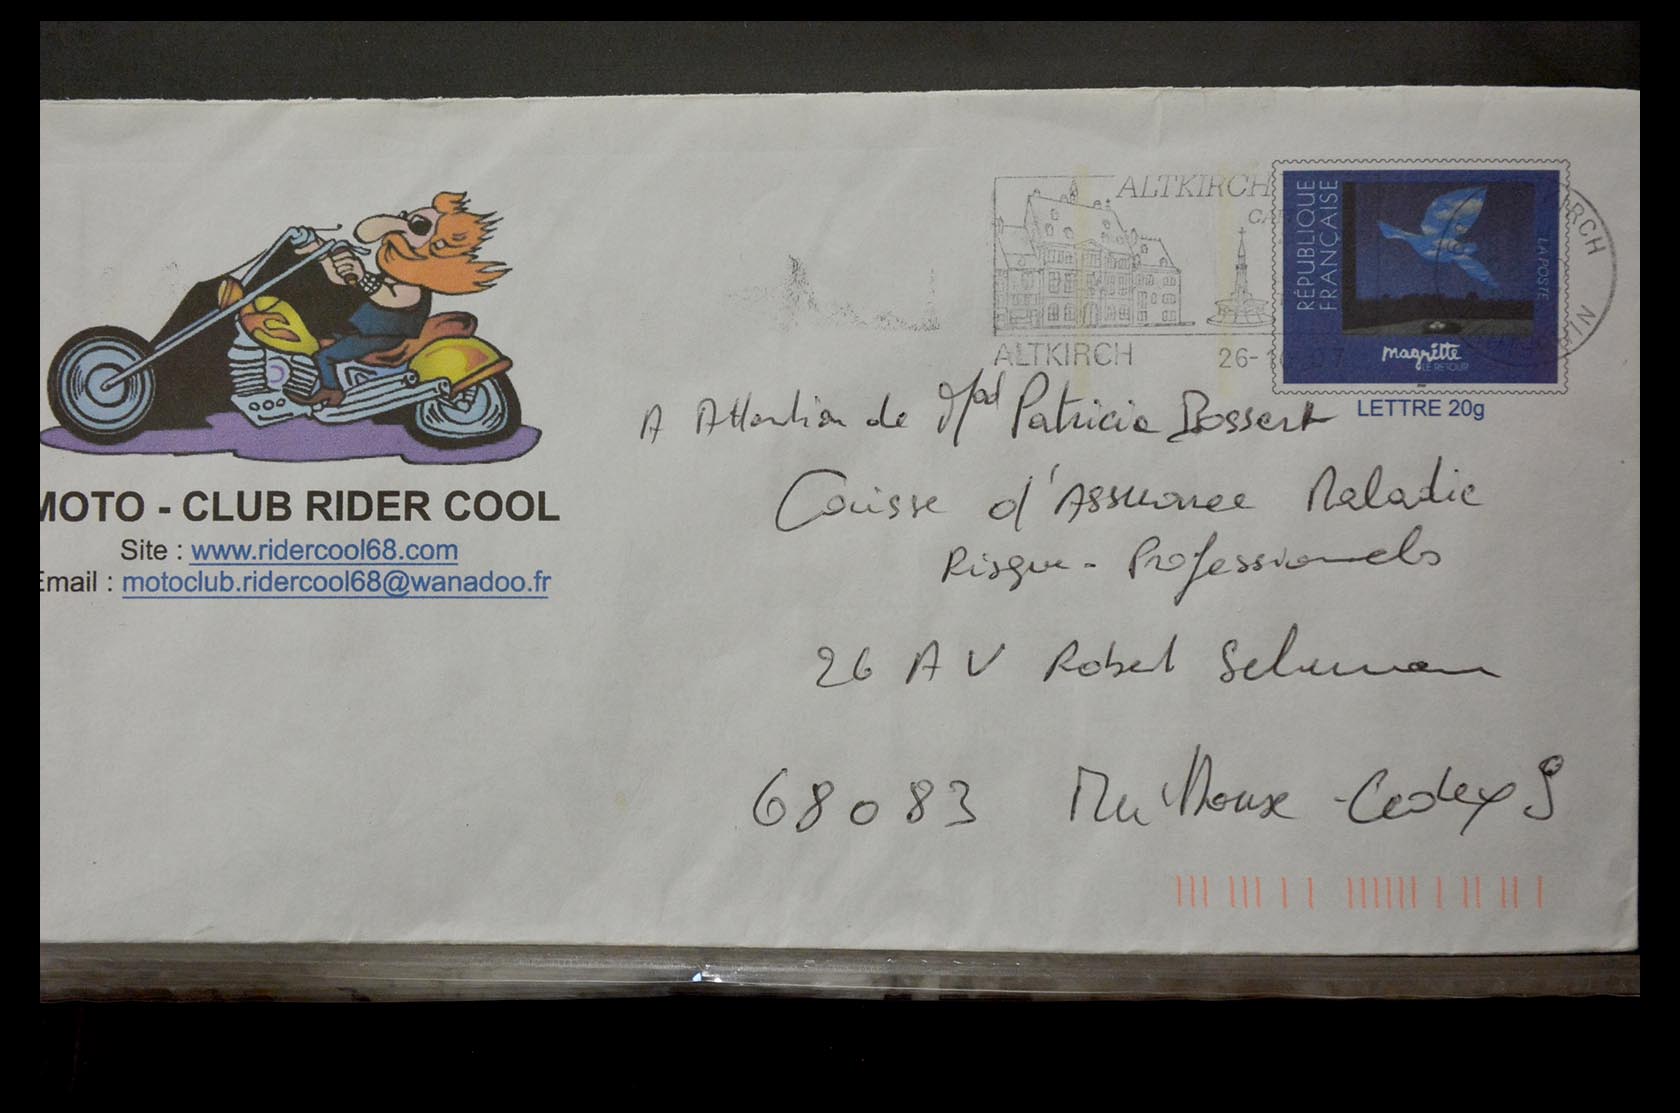 ALTKIRCH
ALTKIRCH
26-
RÉPUBLIQUE
FRANÇAISE
LA POSTE
magritte
LE RETOUR
LETTRE 20g
RCH
MOTO - CLUB RIDER COOL
Site : www.ridercool68.com
Email : motoclub.ridercool68@wanadoo.fr
A Attention de Mad Patricia Bossert
Caisse d'Assurance Maladie
Risque - Professionnels
26 AV Robert Schuman
68083 Mulhouse - Cedex 9